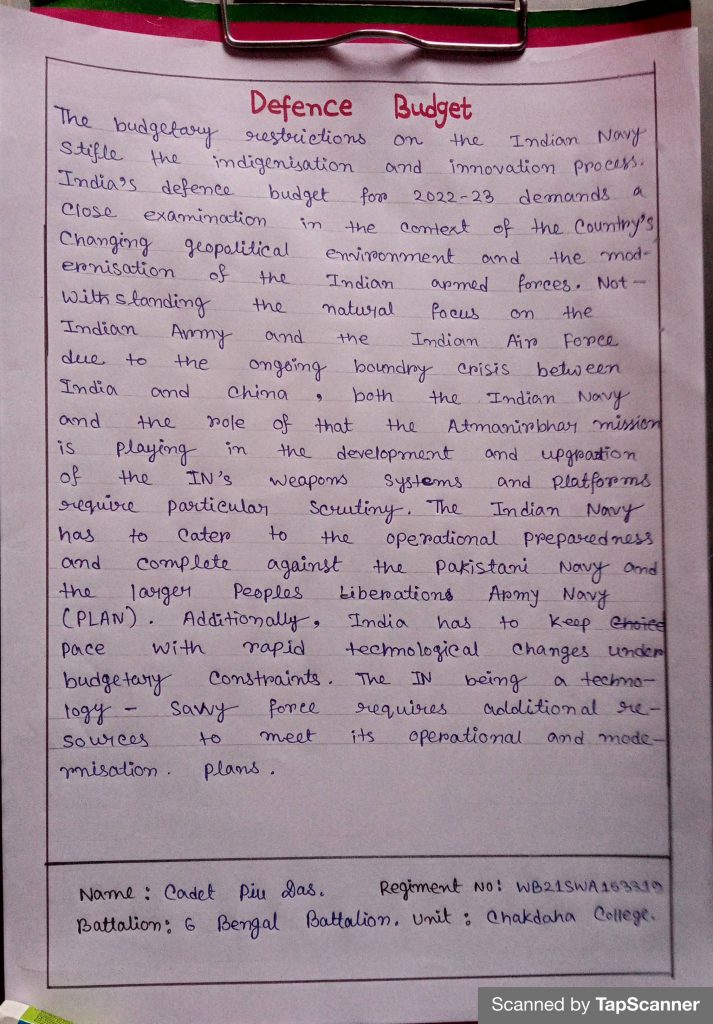 Defence Budget
The budgetary restrictions on the Indian Navy
stifle the indigenisation and innovation process.
India's defence budget for 2022-23 demands a
close examination in the context of the Country's
Changing geopolitical environment and the mod-
ernisation of the Indian armed forces. Not-
withstanding the natural focus on the
Indian Army and the Indian Air Force
due to the ongoing boundry crisis between
India and China, both the Indian Navy
and the role of that the Atmanirbhar mission
is playing in the development and upgration
of the IN's weapons systems and platforms
require particular scrutiny. The Indian Navy
has to cater to the operational preparedness
and complete against the Pakistani Navy and
the larger Peoples Liberations Army Navy
(PLAN). Additionally, India has to keep choice
pace with rapid technological changes under
budgetary constraints. The IN being a techno-
logy - savvy force requires additional re-
sources to meet its operational and mode-
rnisation. plans.
Name: Cadet Piu Das. Regiment No: WB21SWA153319
Battalion: 6 Bengal Battalion. Unit: Chakdaha College.
Scanned by TapScanner